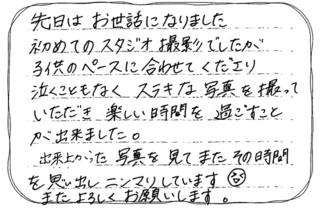 先日は お世話になりました
初めてのスタジオ撮影でしたが
子供のペースに合わせてくださり
泣くこともなく ステキな写真を撮って
いただき 楽しい時間を過ごすこと
が出来ました。
出来上がった写真を見てまたその時間
を思い出しニンマリしています
またよろしくお願いします。